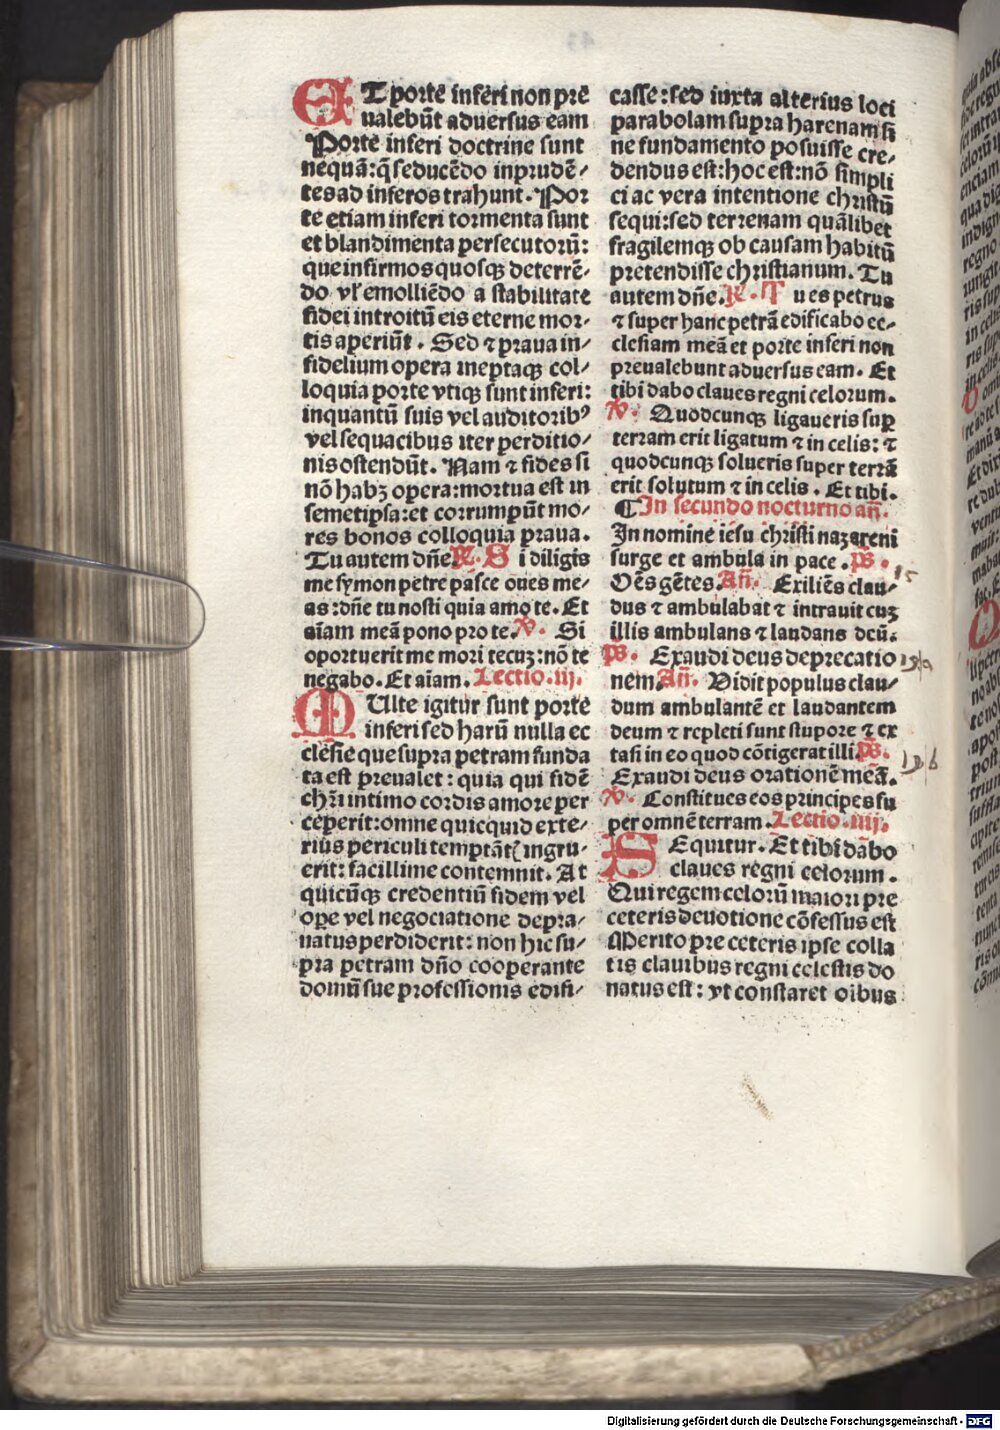 ET portē inferi non pre
ualebūt aduersus eam
Porte inferi doctrine sunt
nequā: q̄ seducēdo inprudē⸗
tes ad inferos trahunt. Por
te etiam inferi tormenta sunt
et blandimenta persecutorū:
que infirmos quosqꝫ deterrē⸗
do vl' emolliēdo a stabilitate
fidei introitū eis eterne mor⸗
tis aperiūt. Sed ⁊ praua in⸗
fidelium opera ineptaqꝫ col⸗
loquia porte vtiqꝫ sunt inferi:
inquantū suis vel auditoribꝰ
vel sequacibus iter perditio⸗
nis ostendūt. Nam ⁊ fides si
nō habꝫ opera: mortua est in
semetipsa: et corrumpūt mo⸗
res bonos colloquia praua.
Tu autem dn̄e. R. Si diligis
me symon petre pasce oues me⸗
as: dn̄e tu nosti quia amo te. Et
aīam meā pono pro te. V. Si
oportuerit me mori tecuꝫ: nō te
negabo. Et aīam. Lectio .iij.
MUlte igitur sunt porte
inferi sed harū nulla ec
clesie que supra petram funda
ta est preualet: quia qui fidē
chr̄i intimo cordis amore per
ceperit: omne quicquid exte⸗
rius periculi temptātꝭ ingru⸗
erit: facillime contemnit. At
quicūqꝫ credentiū fidem vel
oꝑe vel negociatione depra⸗
uatus perdiderit: non hic su⸗
pra petram dn̄o cooperante
domū sue professionis edifi⸗
casse: sed iuxta alterius loci
parabolam supra harenam si
ne fundamento posuisse cre⸗
dendus est: hoc est: nō simpli
ci ac vera intentione christū
sequi: sed terrenam quālibet
fragilemqꝫ ob causam habitū
pretendisse christianum. Tu
autem dn̄e. R. Tu es petrus
⁊ super hanc petrā edificabo ec⸗
clesiam meā et porte inferi non
preualebunt aduersus eam. Et
tibi dabo claues regni celorum.
V. Quodcunqꝫ ligaueris suꝑ
terram erit ligatum ⁊ in celis: ⁊
quodcunqꝫ solueris super terrā
erit solutum ⁊ in celis. Et tibi.
¶ In secundo nocturno an̄.
In nomine iesu christi nazareni
surge et ambula in pace. p̄s.
Oēs gētes. An̄. Exiliēs clau⸗
dus ⁊ ambulabat ⁊ intrauit cuꝫ
illis ambulans ⁊ laudans deū.
p̄s. Exaudi deus deprecatio
nem. An̄. Vidit populus clau⸗
dum ambulantē et laudantem
deum ⁊ repleti sunt stupore ⁊ ex
tasi in eo quod cōtigerat illi. p̄s.
Exaudi deus orationē meā.
V. Constitues eos principes su
per omnē terram. Lectio .iiij.
SEquitur. Et tibi dabo
claues regni celorum.
Qui regem celorū maiori pre
ceteris deuotione cōfessus est
Merito pre ceteris ipse colla
tis clauibus regni celestis do
natus est: vt constaret oībus
Digitalisierung gefördert durch die Deutsche Forschungsgemeinschaft - DFG